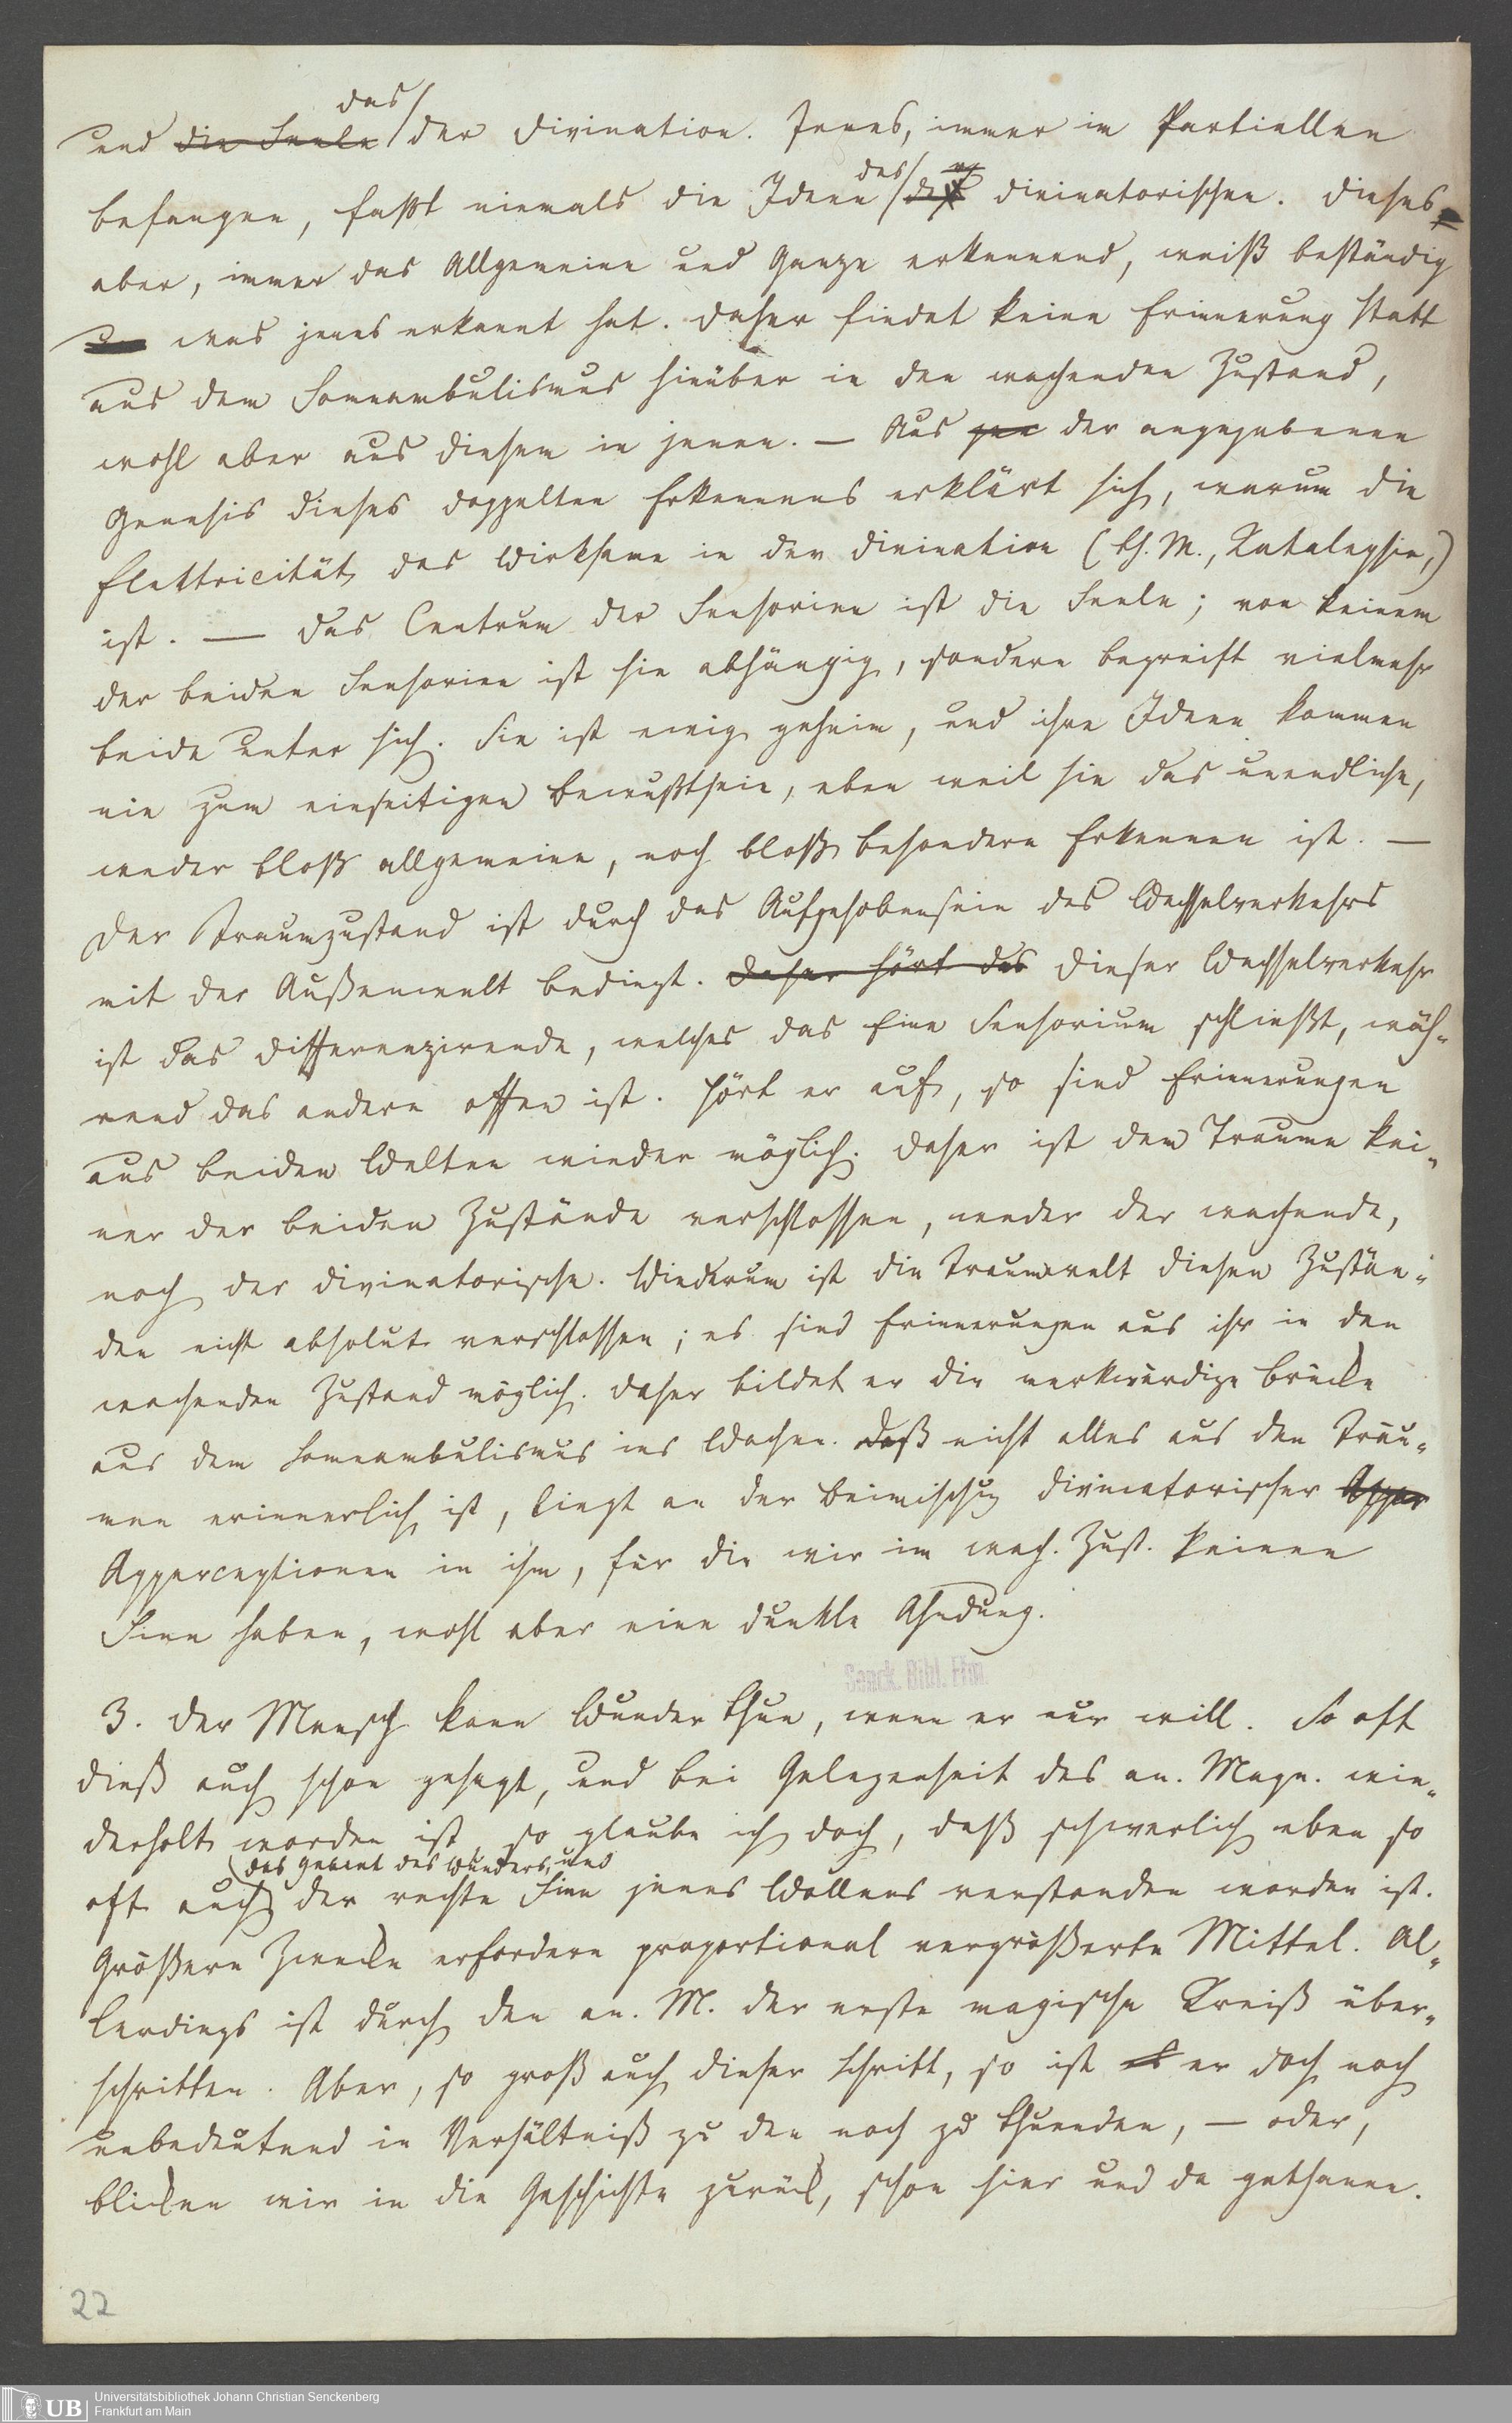 das
und die Seele der Divination. Jenes, immer im Partiellen
des
befangen, faßt niemals die Ideen der divinatorischen. Dieses
aber, immer das Allgemeine und Ganze erkennend, weiß beständig
was jenes erkannt hat. Daher findet keine Erinnerung Statt
aus dem Somnambulismus hinüber in den wachenden Zustand,
wohl aber aus diesem in jenen. — Aus der angegebenen
Genesis dieses doppelten Erkennens erklärt sich, warum die
Elektricität das Wirksame in der Divination (th. M., Katalepsie,)
ist. — Das Centrum der Sensorien ist die Seele; von keinem
der beiden Sensorien ist sie abhängig, sondern begreift vielmehr
beide unter sich. Sie ist ewig geheim, und ihre Ideen kommen
nie zum einseitigen Bewußtsein, eben weil sie das unendliche,
weder bloß allgemeine, noch bloß besondere Erkennen ist. —
Der Traumzustand ist durch das Aufgehobensein des Wechselverkehrs
mit der Außenwelt bedingt. Daher hört das Dieser Wechselverkehr
ist das Differenzirende, welches das Eine Sensorium schließt, wäh-
rend das andere offen ist. Hört er auf, so sind Erinnerungen
aus beiden Welten wieder möglich. Daher ist dem Traume kei-
ner der beiden Zustände verschlossen, weder der wachende,
noch der divinatorische. Wiederum ist die Traumwelt diesen Zustän-
den nicht absolut verschlossen; es sind Erinnerungen aus ihr in den
wachenden Zustand möglich. Daher bildet er die merkwürdige Brücke
aus dem Somnambulismus ins Wachen. Daß nicht alles aus den Träu-
men erinnerlich ist, liegt an der Beimischung divinatorischer Apper
Apperceptionen in ihm, für die wir im wach. Zust. keinen
Sinn haben, wohl aber eine dunkle Ahndung.
Senck. Bibl. Ffm.
3. Der Mensch kann Wunder thun, wenn er nur will. So oft
dieß auch schon gesagt, und bei Gelegenheit des an. Magn. wie-
derholt worden ist, so glaube ich doch, daß schwerlich eben so
des Wunders, und
oft auch der rechte Sinn jenes Wollens verstanden worden ist.
Größere Zwecke erfordern proportional vergrößerte Mittel. Al-
lerdings ist durch den an. M. der erste magische Kreiß über-
schritten. Aber, so groß auch dieser Schritt, so ist es er doch noch
unbedeutend im Verhältniß zu den noch zu thuenden, — oder,
blicken wir in die Geschichte zurück, schon hier und da gethanen.
22
UB Universitätsbibliothek Johann Christian Senckenberg
Frankfurt am Main